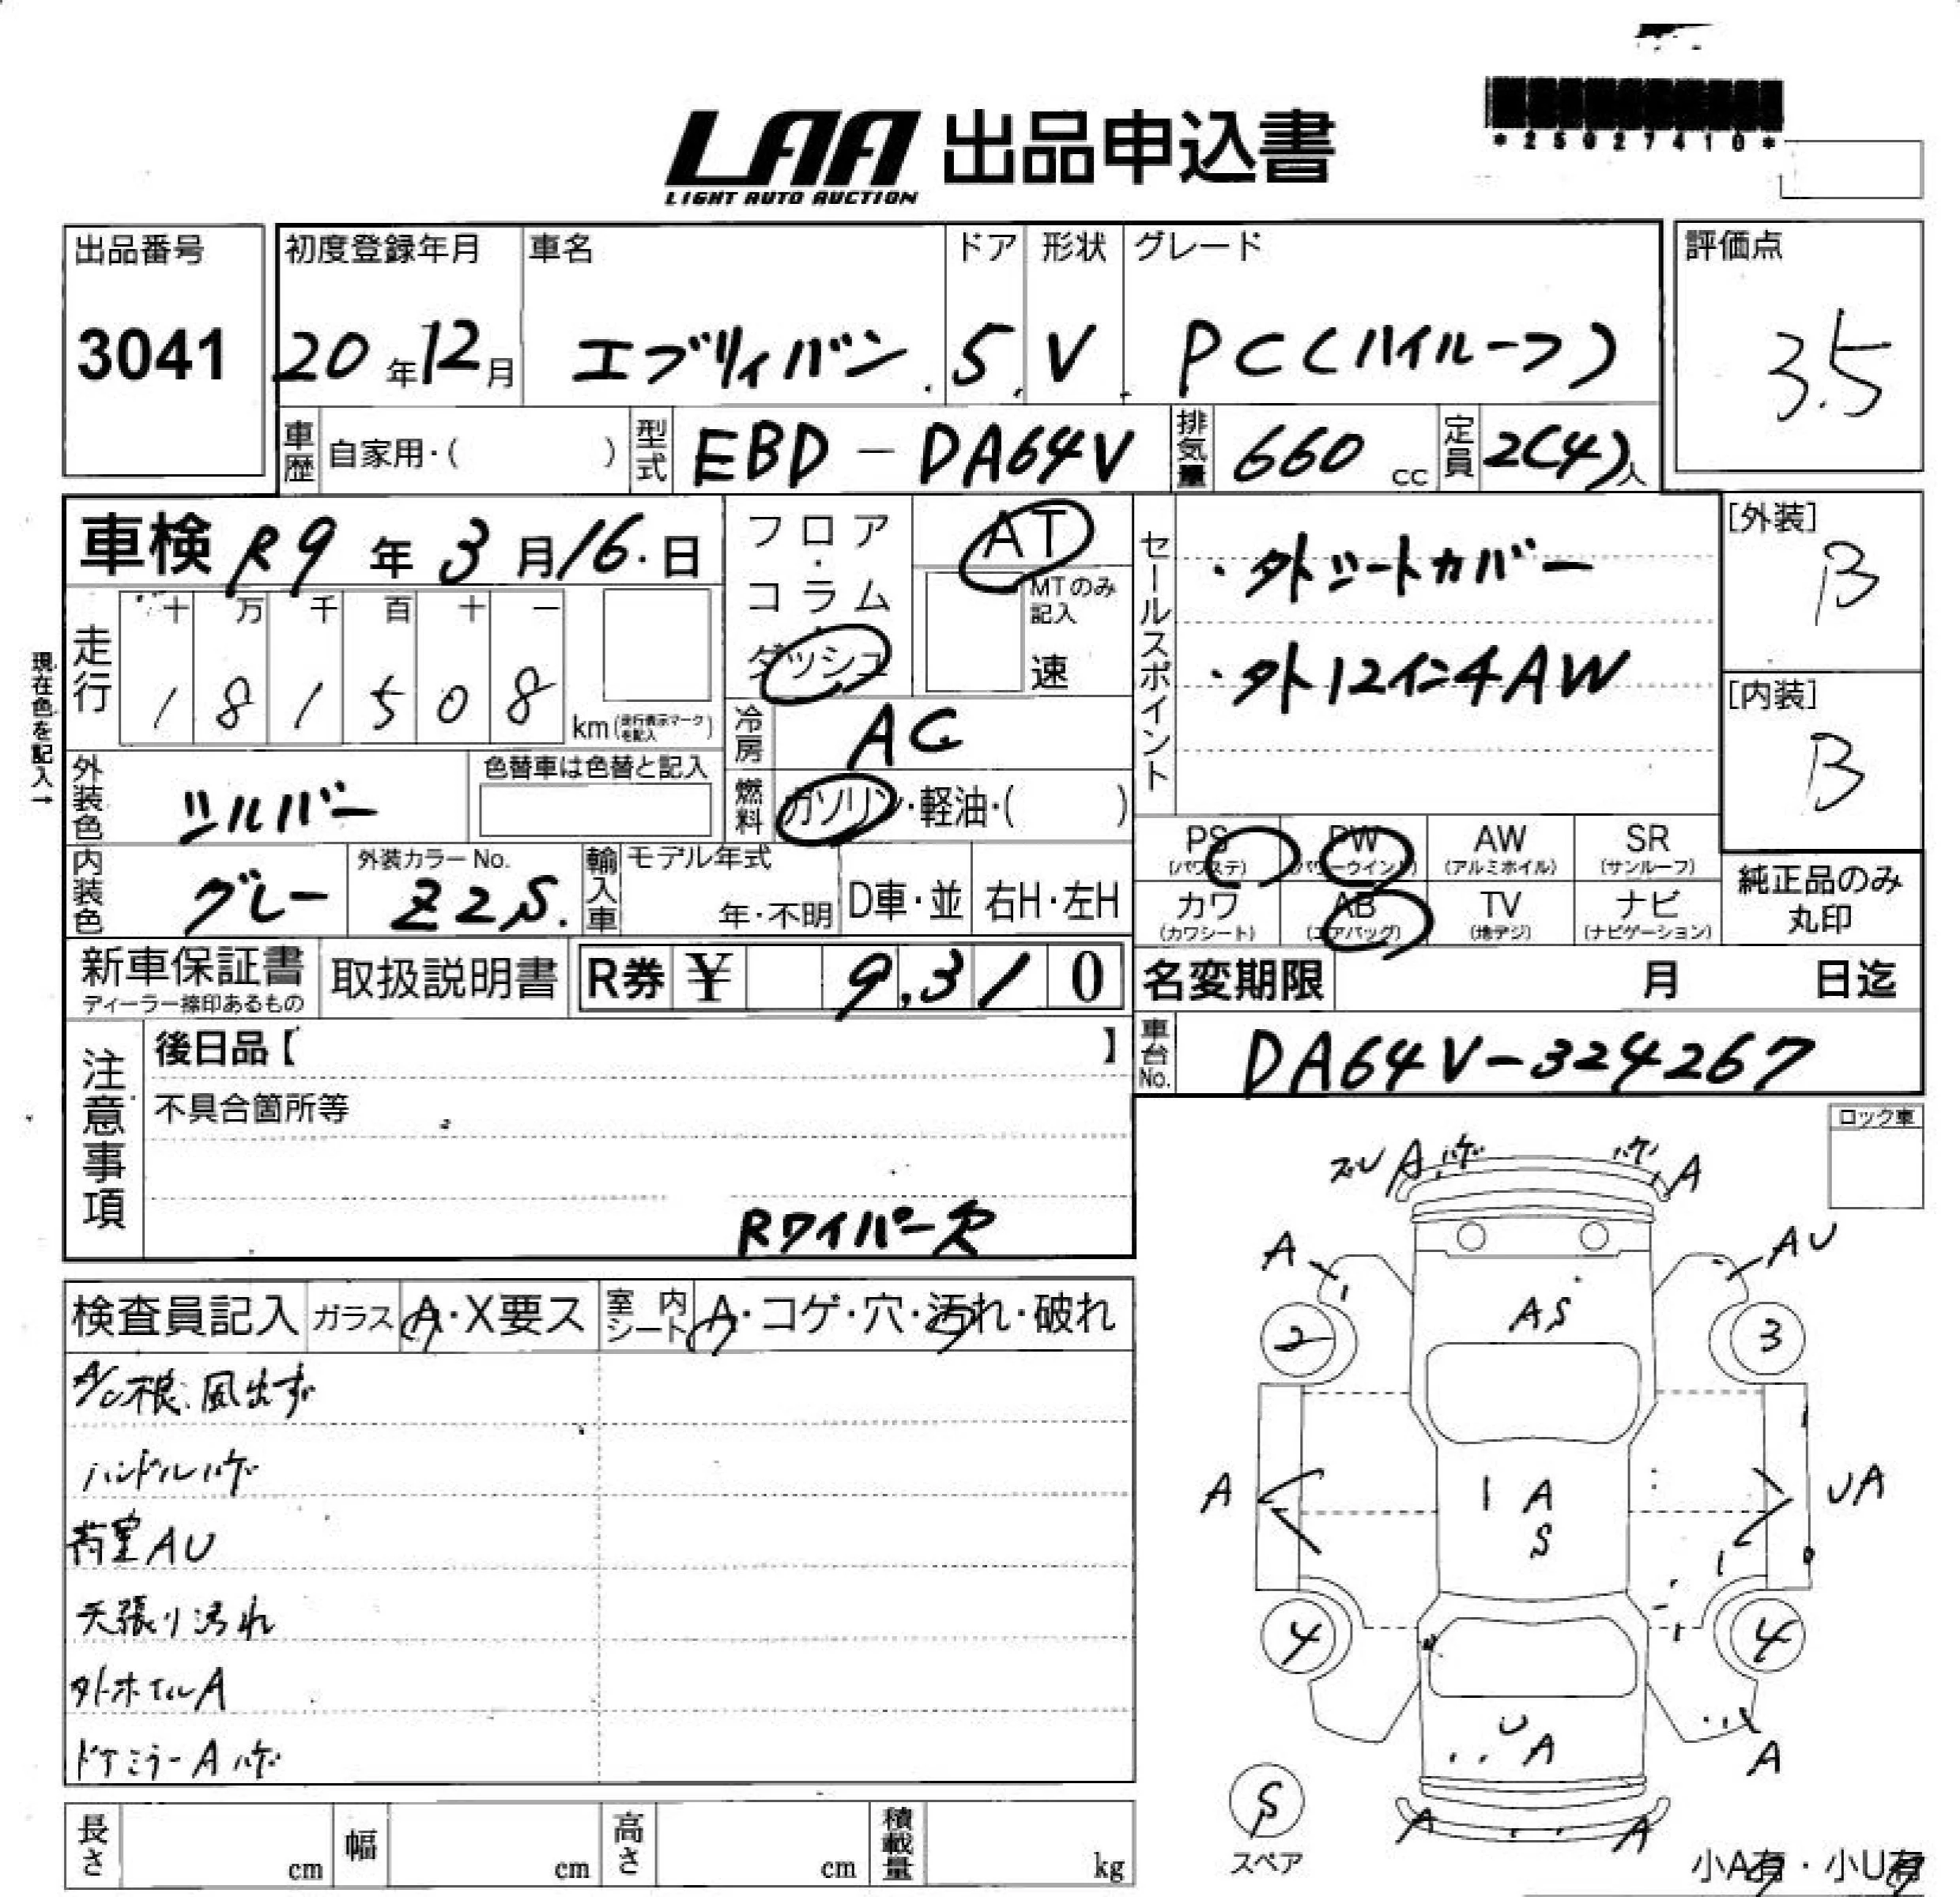 *25027410*
LAA 出品申込書
LIGHT AUTO AUCTION
出品番号 初度登録年月 車名 ドア 形状 グレード 評価点
3041 20年12月 エブリィバン 5 V PC(ハイルーフ) 3.5
車歴 自家用・( ) 型式 EBD-DA64V 排気量 660 cc 定員 2(4)人
車検 R9年3月16日
フロア・コラム・ダッシュ
AT
MTのみ記入
速
セールスポイント
・外シートカバー
・外12インチAW
[外装]
B
[内装]
B
現在色を記入→
走行 十 万 千 百 十 一
1 8 1 5 0 8 km(走行表示マークを記入)
冷房 AC
外装色 シルバー 色替車は色替と記入
燃料 ガソリン・軽油・( )
PS (パワステ) PW (パワーウインド) AW (アルミホイル) SR (サンルーフ)
カワ (カワシート) AB (エアバッグ) TV (地デジ) ナビ (ナビゲーション)
純正品のみ丸印
内装色 グレー 外装カラーNo. Z2S. 輸入車 モデル年式 年・不明 D車・並 右H・左H
新車保証書 ディーラー捺印あるもの 取扱説明書 R券 ¥ 9,310 名変期限 月 日迄
注意事項
後日品【 】
車台No. DA64V-324267
不具合箇所等
Rワイパー欠
ロック車
検査員記入 ガラス A・X要ス 室内シート A・コゲ・穴・汚れ・破れ
A/C根、風出ず
ハンドルハゲ
荷室AU
天張り汚れ
外ホイルA
ドアミラーAハゲ
ズレ A ハゲ ハゲ A
A AU
AS
2 3
A A UA
S
4 4
U
A A
S
スペア
A A
小A有・小U有
長さ cm 幅 cm 高さ cm 積載量 kg